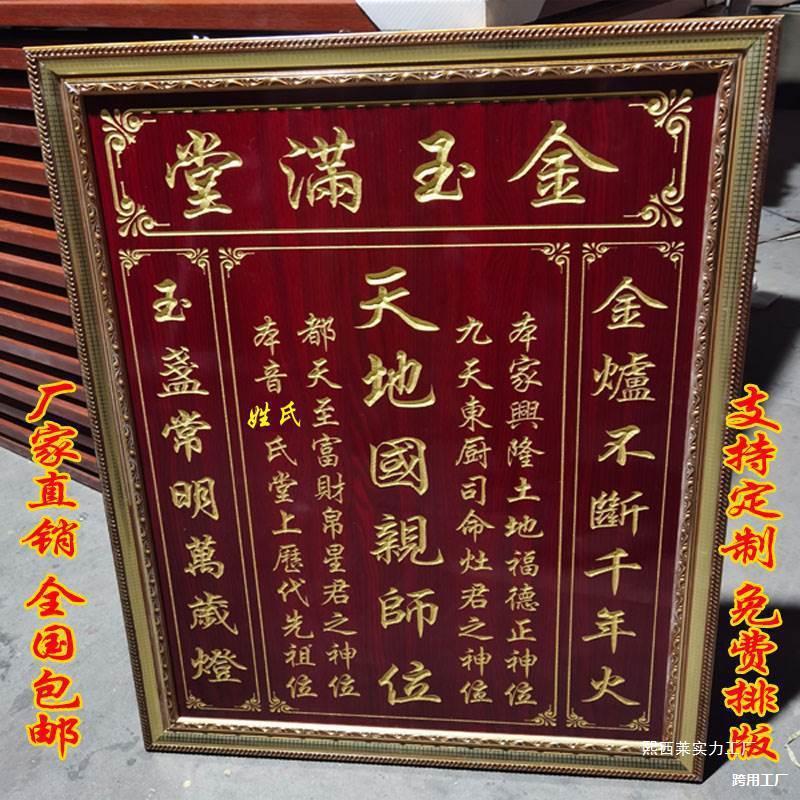 金玉滿堂
金爐不斷千年火
本家興隆土地福德正神位
九天東厨司命灶君之神位
天地國親師位
都天至富財帛星君之神位
本音姓氏氏堂上歷代先祖位
玉盞常明萬歲燈
支持定制 免费排版
厂家直销 全国包邮
熙西莱实力工厂
跨用工厂